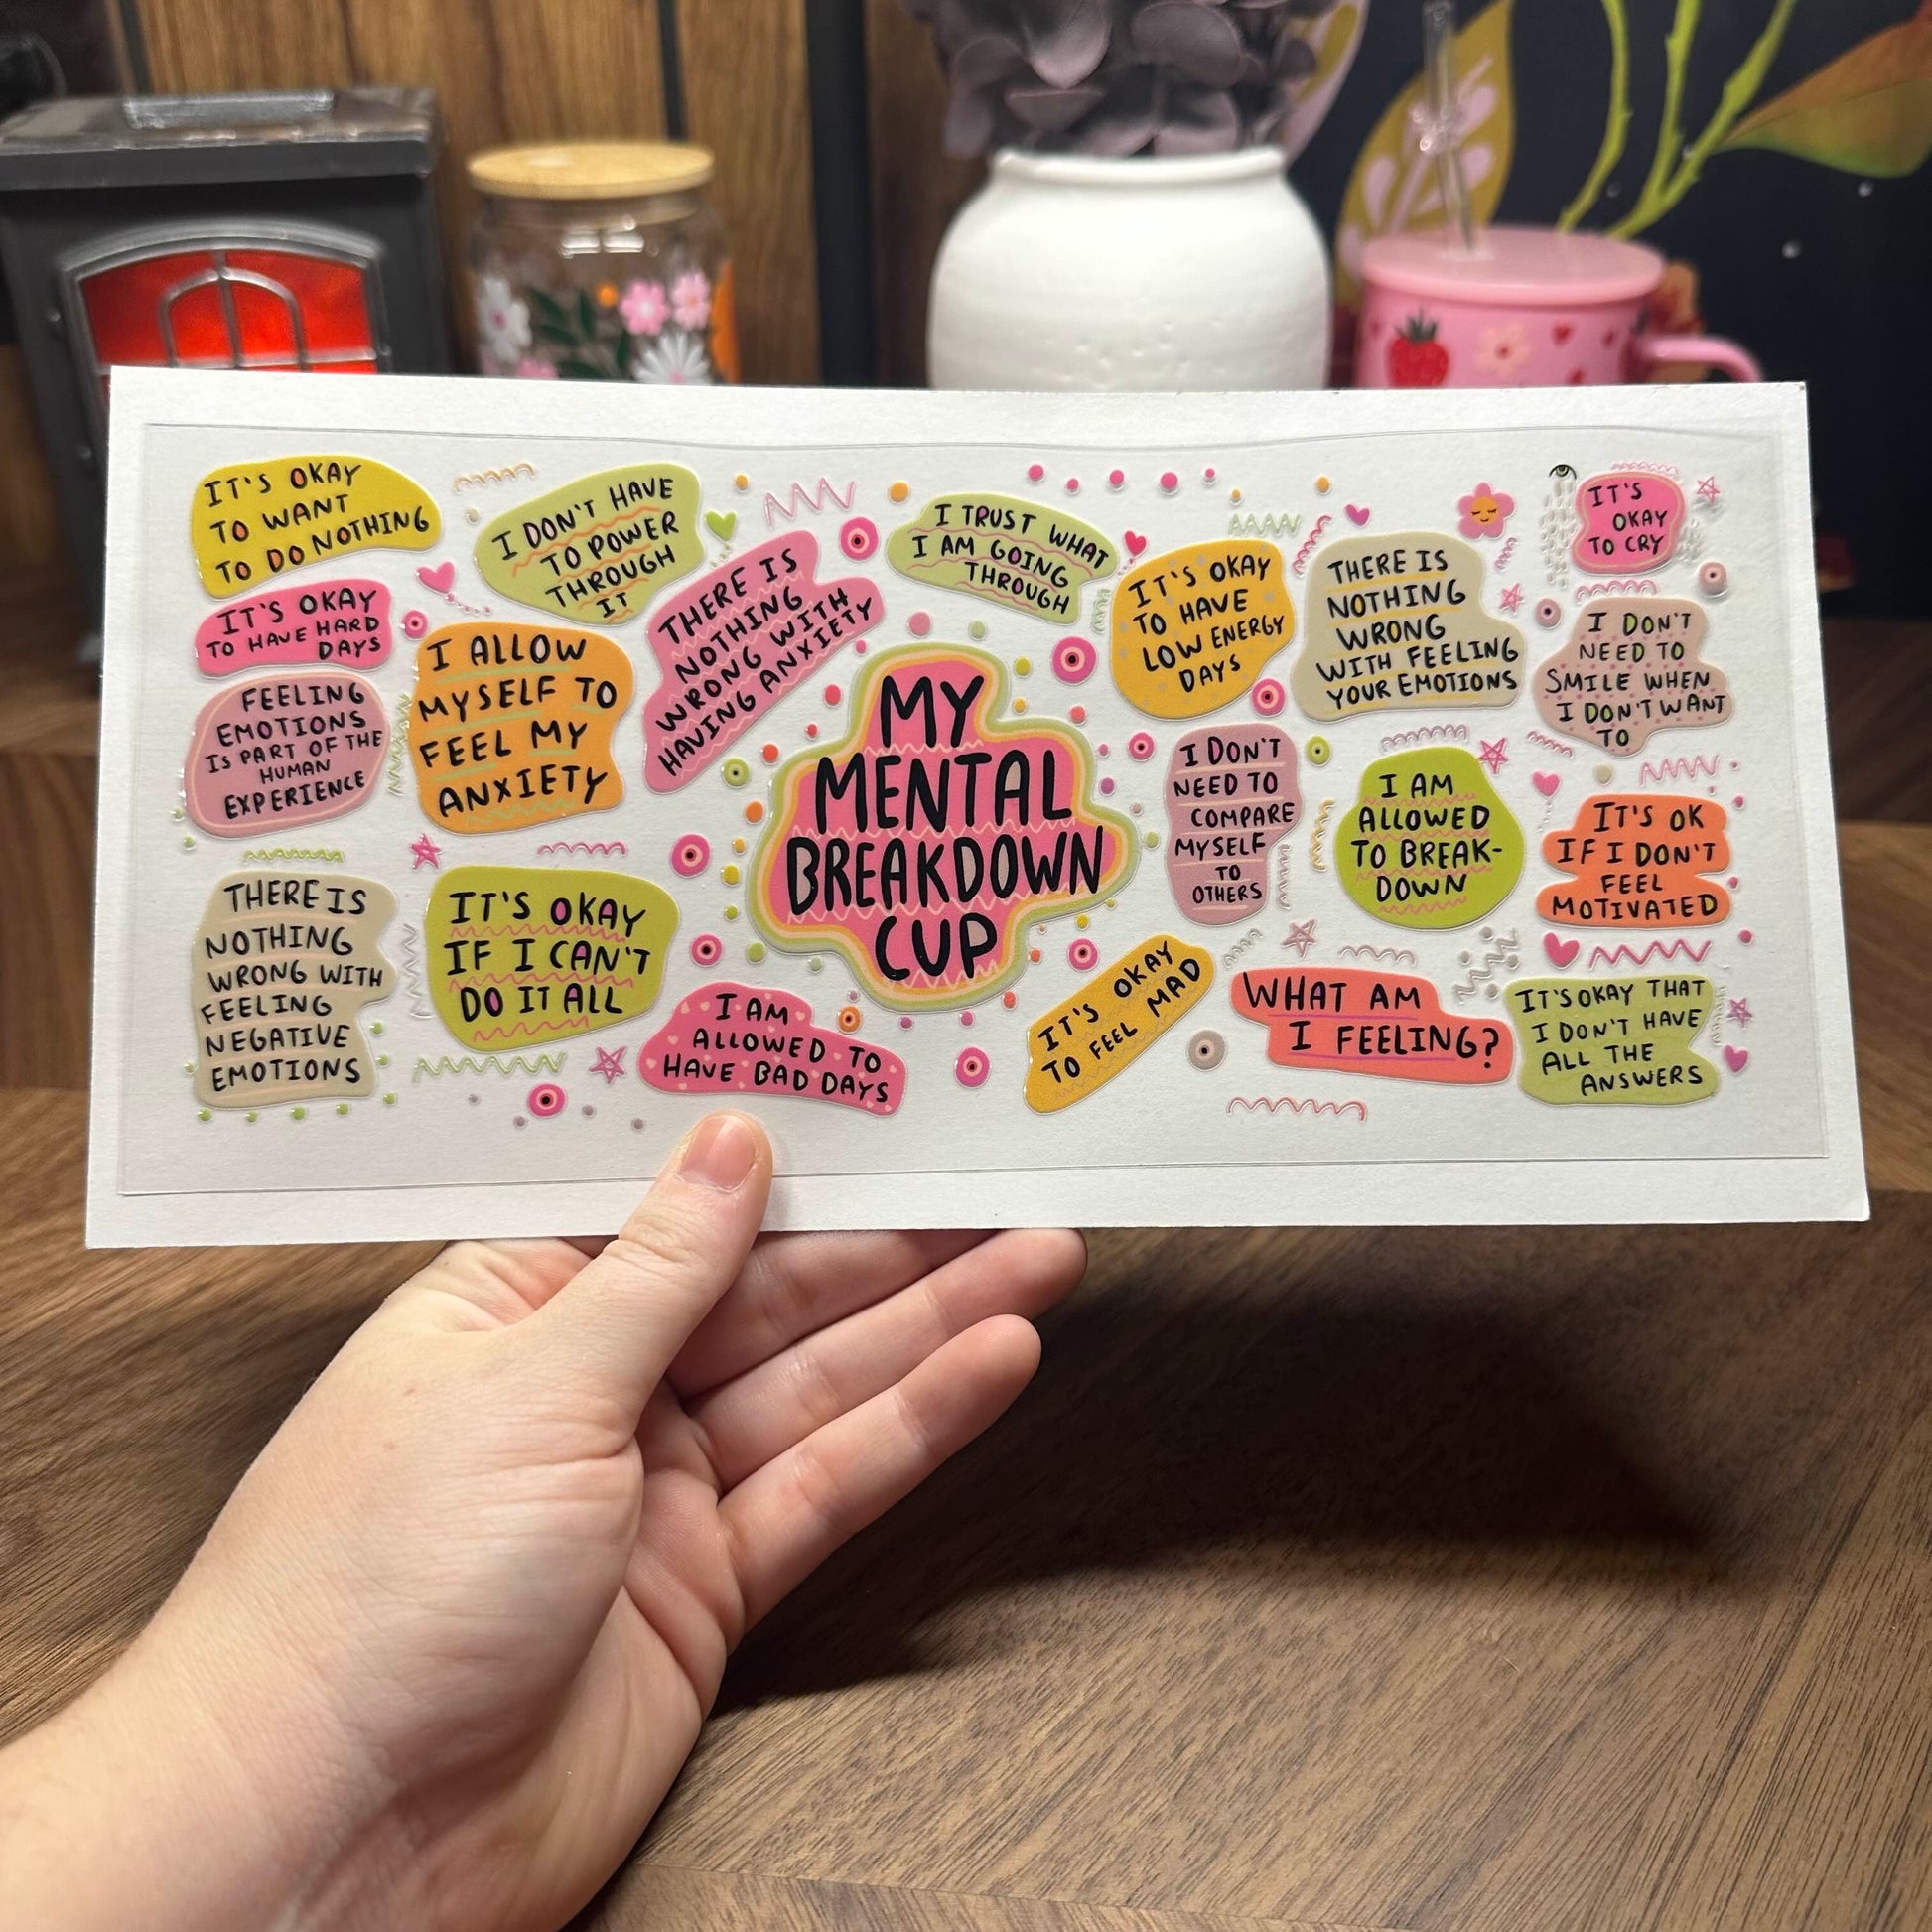 IT'S OKAY
TO WANT
TO DO NOTHING
IT'S OKAY
TO HAVE HARD
DAYS
FEELING
EMOTIONS
IS PART OF THE
HUMAN
EXPERIENCE
THERE IS
NOTHING
WRONG WITH
FEELING
NEGATIVE
EMOTIONS
I DON'T HAVE
TO POWER
THROUGH
IT
I ALLOW
MYSELF TO
FEEL MY
ANXIETY
IT'S OKAY
IF I CAN'T
DO IT ALL
THERE IS
NOTHING
WRONG WITH
HAVING ANXIETY
I AM
ALLOWED TO
HAVE BAD DAYS
MY
MENTAL
BREAKDOWN
CUP
I TRUST WHAT
I AM GOING
THROUGH
IT'S OKAY
TO HAVE
LOW ENERGY
DAYS
I DON'T
NEED TO
COMPARE
MYSELF
TO
OTHERS
IT'S OKAY
TO FEEL MAD
THERE IS
NOTHING
WRONG
WITH FEELING
YOUR EMOTIONS
I AM
ALLOWED
TO BREAK-
DOWN
WHAT AM
I FEELING?
IT'S
OKAY
TO CRY
I DON'T
NEED TO
SMILE WHEN
I DON'T WANT
TO
IT'S OK
IF I DON'T
FEEL
MOTIVATED
IT'S OKAY THAT
I DON'T HAVE
ALL THE
ANSWERS